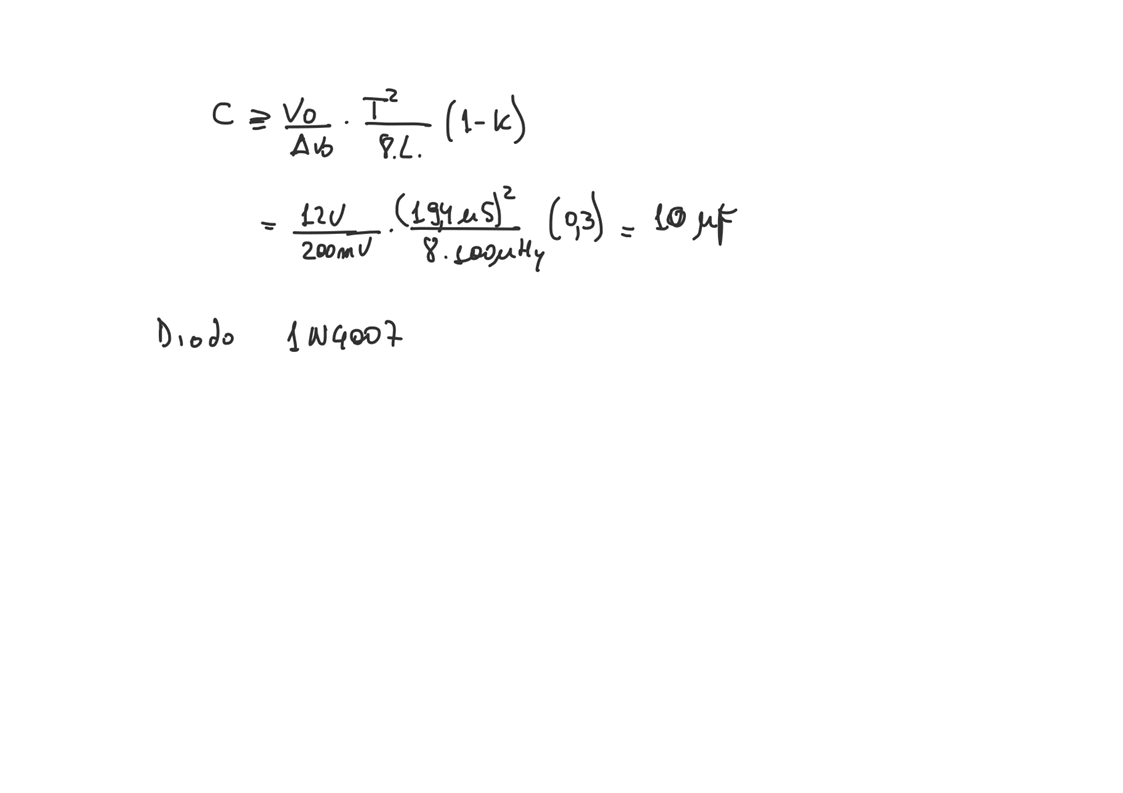 C ≥ Vo/Δvo · T²/8.L. (1-k)
= 12V/200mV · (19,4 μS)²/8.100μHy (0,3) = 10 μF
Diodo 1N4007